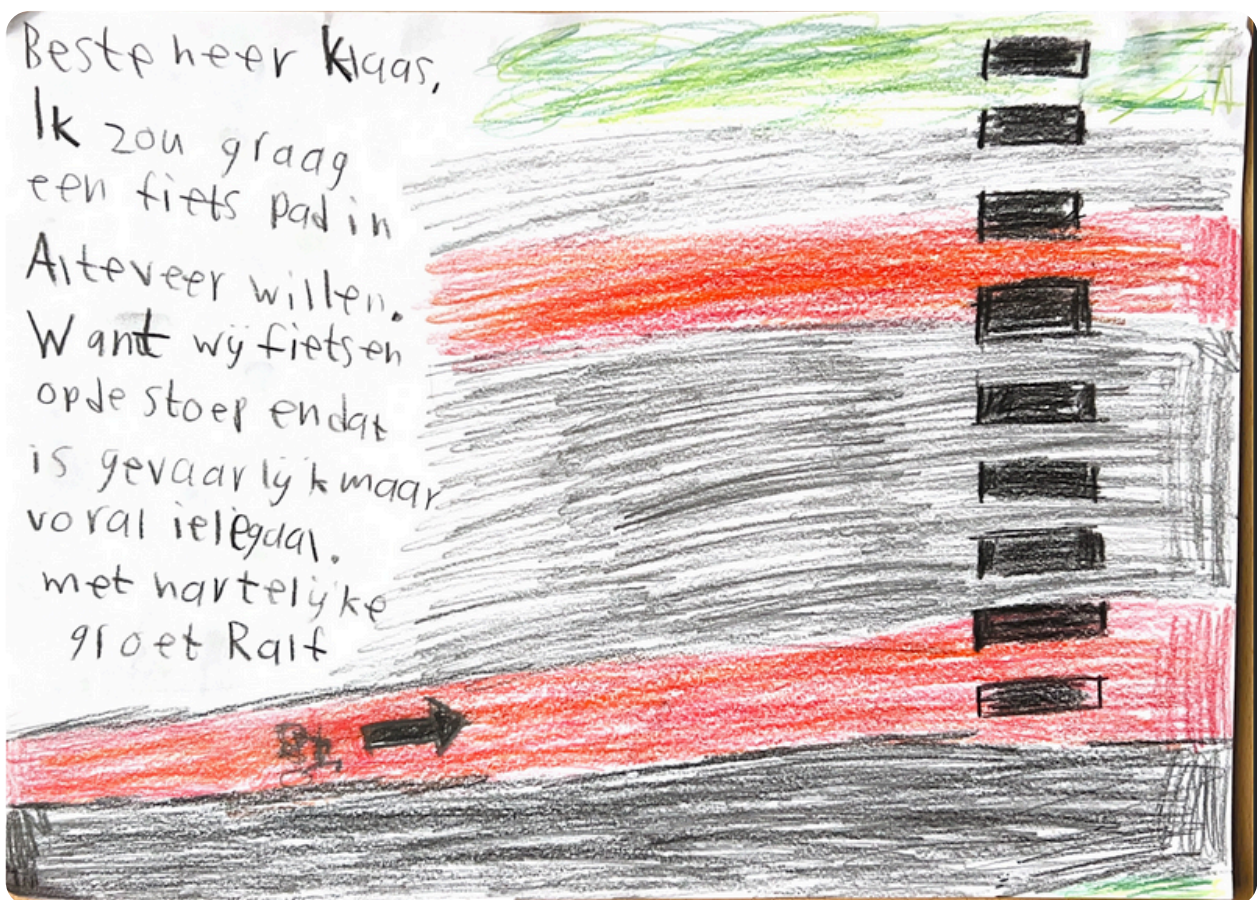 Beste heer Klaas,
Ik zou graag
een fiets pad in
Alteveer willen.
Want wij fietsen
op de stoep en dat
is gevaarlijk maar
voral ielegaal.
met hartelijke
groet Ralf